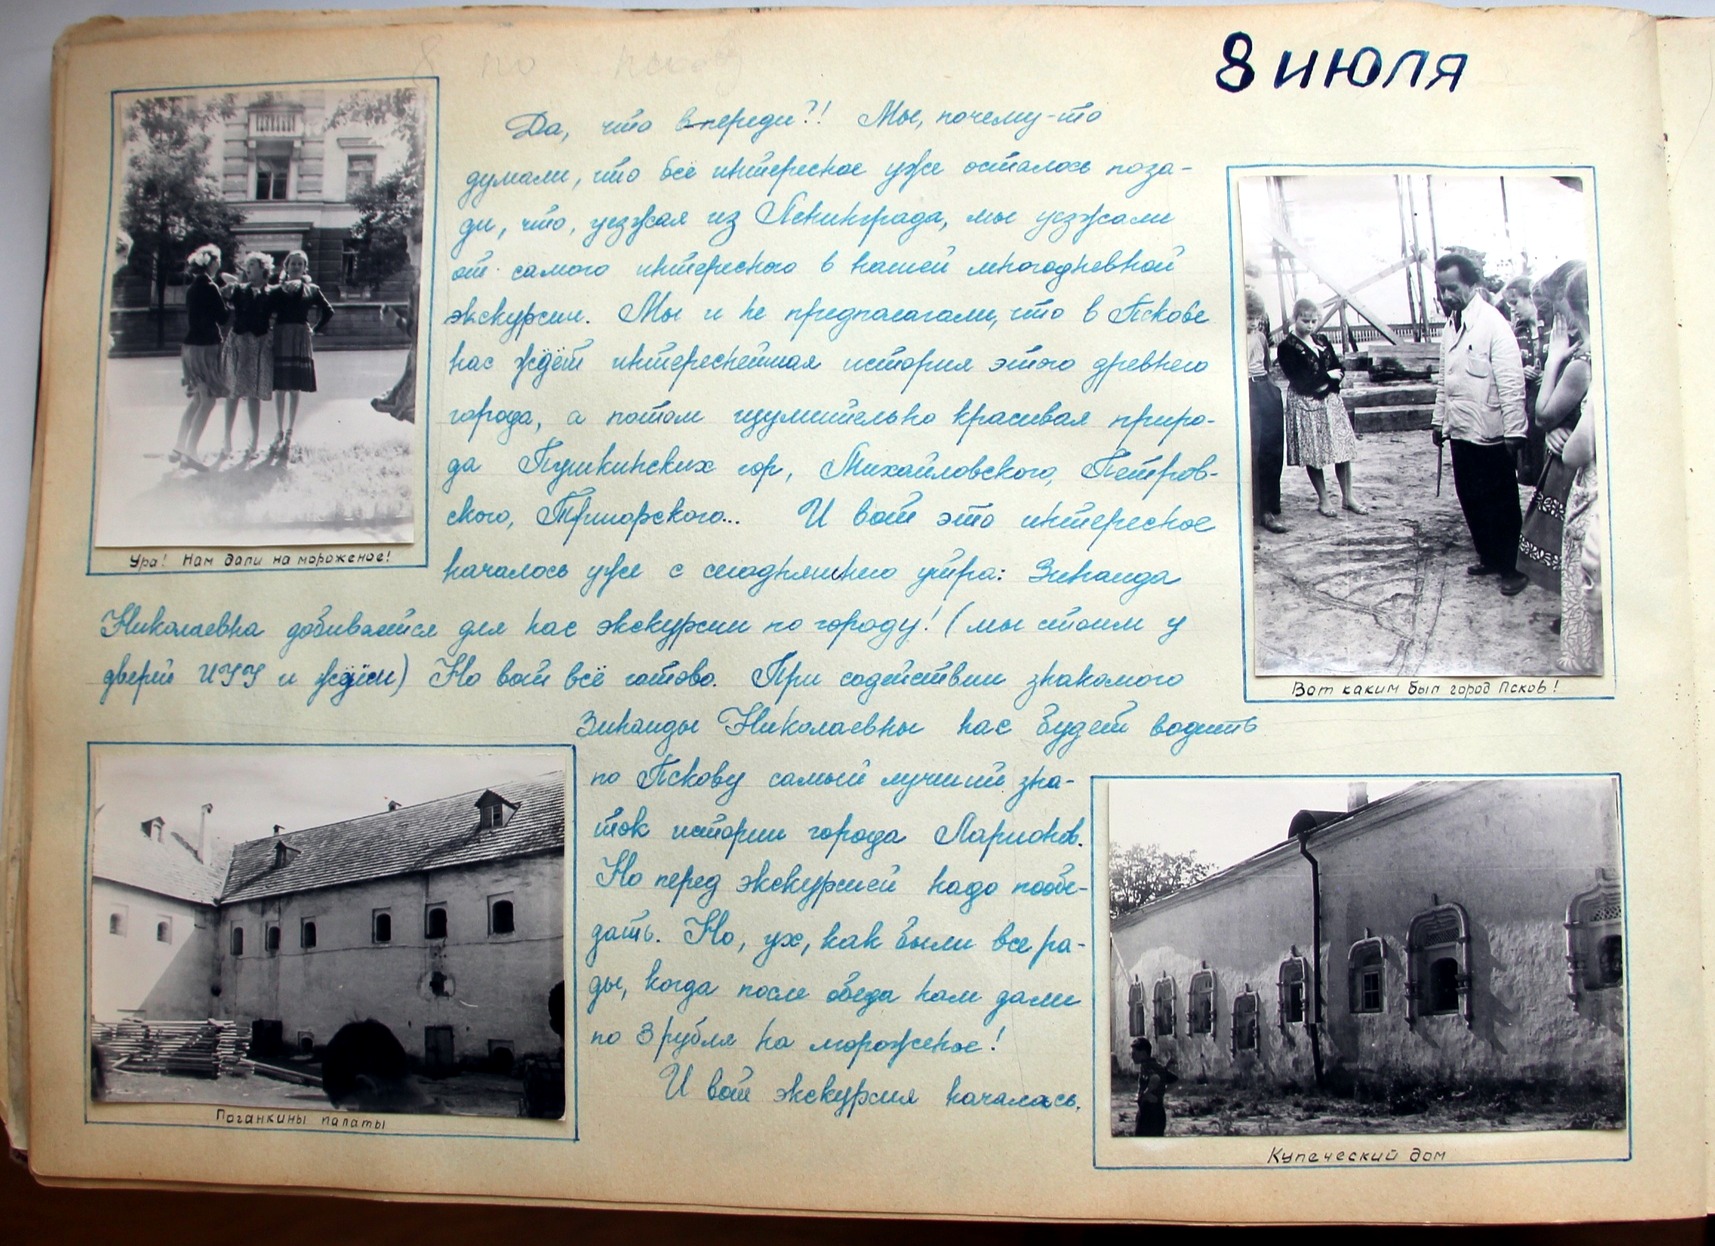 8 по Пскову
8 ИЮЛЯ
Да, что впереди?! Мы, почему-то
думали, что всё интересное уже осталось поза-
ди, что, уезжая из Ленинграда, мы уезжали
от самого интересного в нашей многодневной
экскурсии. Мы и не предполагали, что в Пскове
нас ждёт интереснейшая история этого древнего
города, а потом изумительно красивая приро-
да Пушкинских гор, Михайловского, Петров-
ского, Тригорского... И вот это интересное
началось уже с сегодняшнего утра: Зинаида
Николаевна добивается для нас экскурсии по городу! (мы стоим у
дверей ИУУ и ждём) Но вот всё готово. При содействии знакомого
Зинаиды Николаевны нас будет водить
по Пскову самый лучший зна-
ток истории города Ларионов.
Но перед экскурсией надо пообе-
дать. Но, ух, как были все ра-
ды, когда после обеда нам дали
по 3 рубля на мороженое!
И вот экскурсия началась.
Ура! Нам дали на мороженое!
Вот каким был город Псков!
Поганкины палаты
Купеческий дом